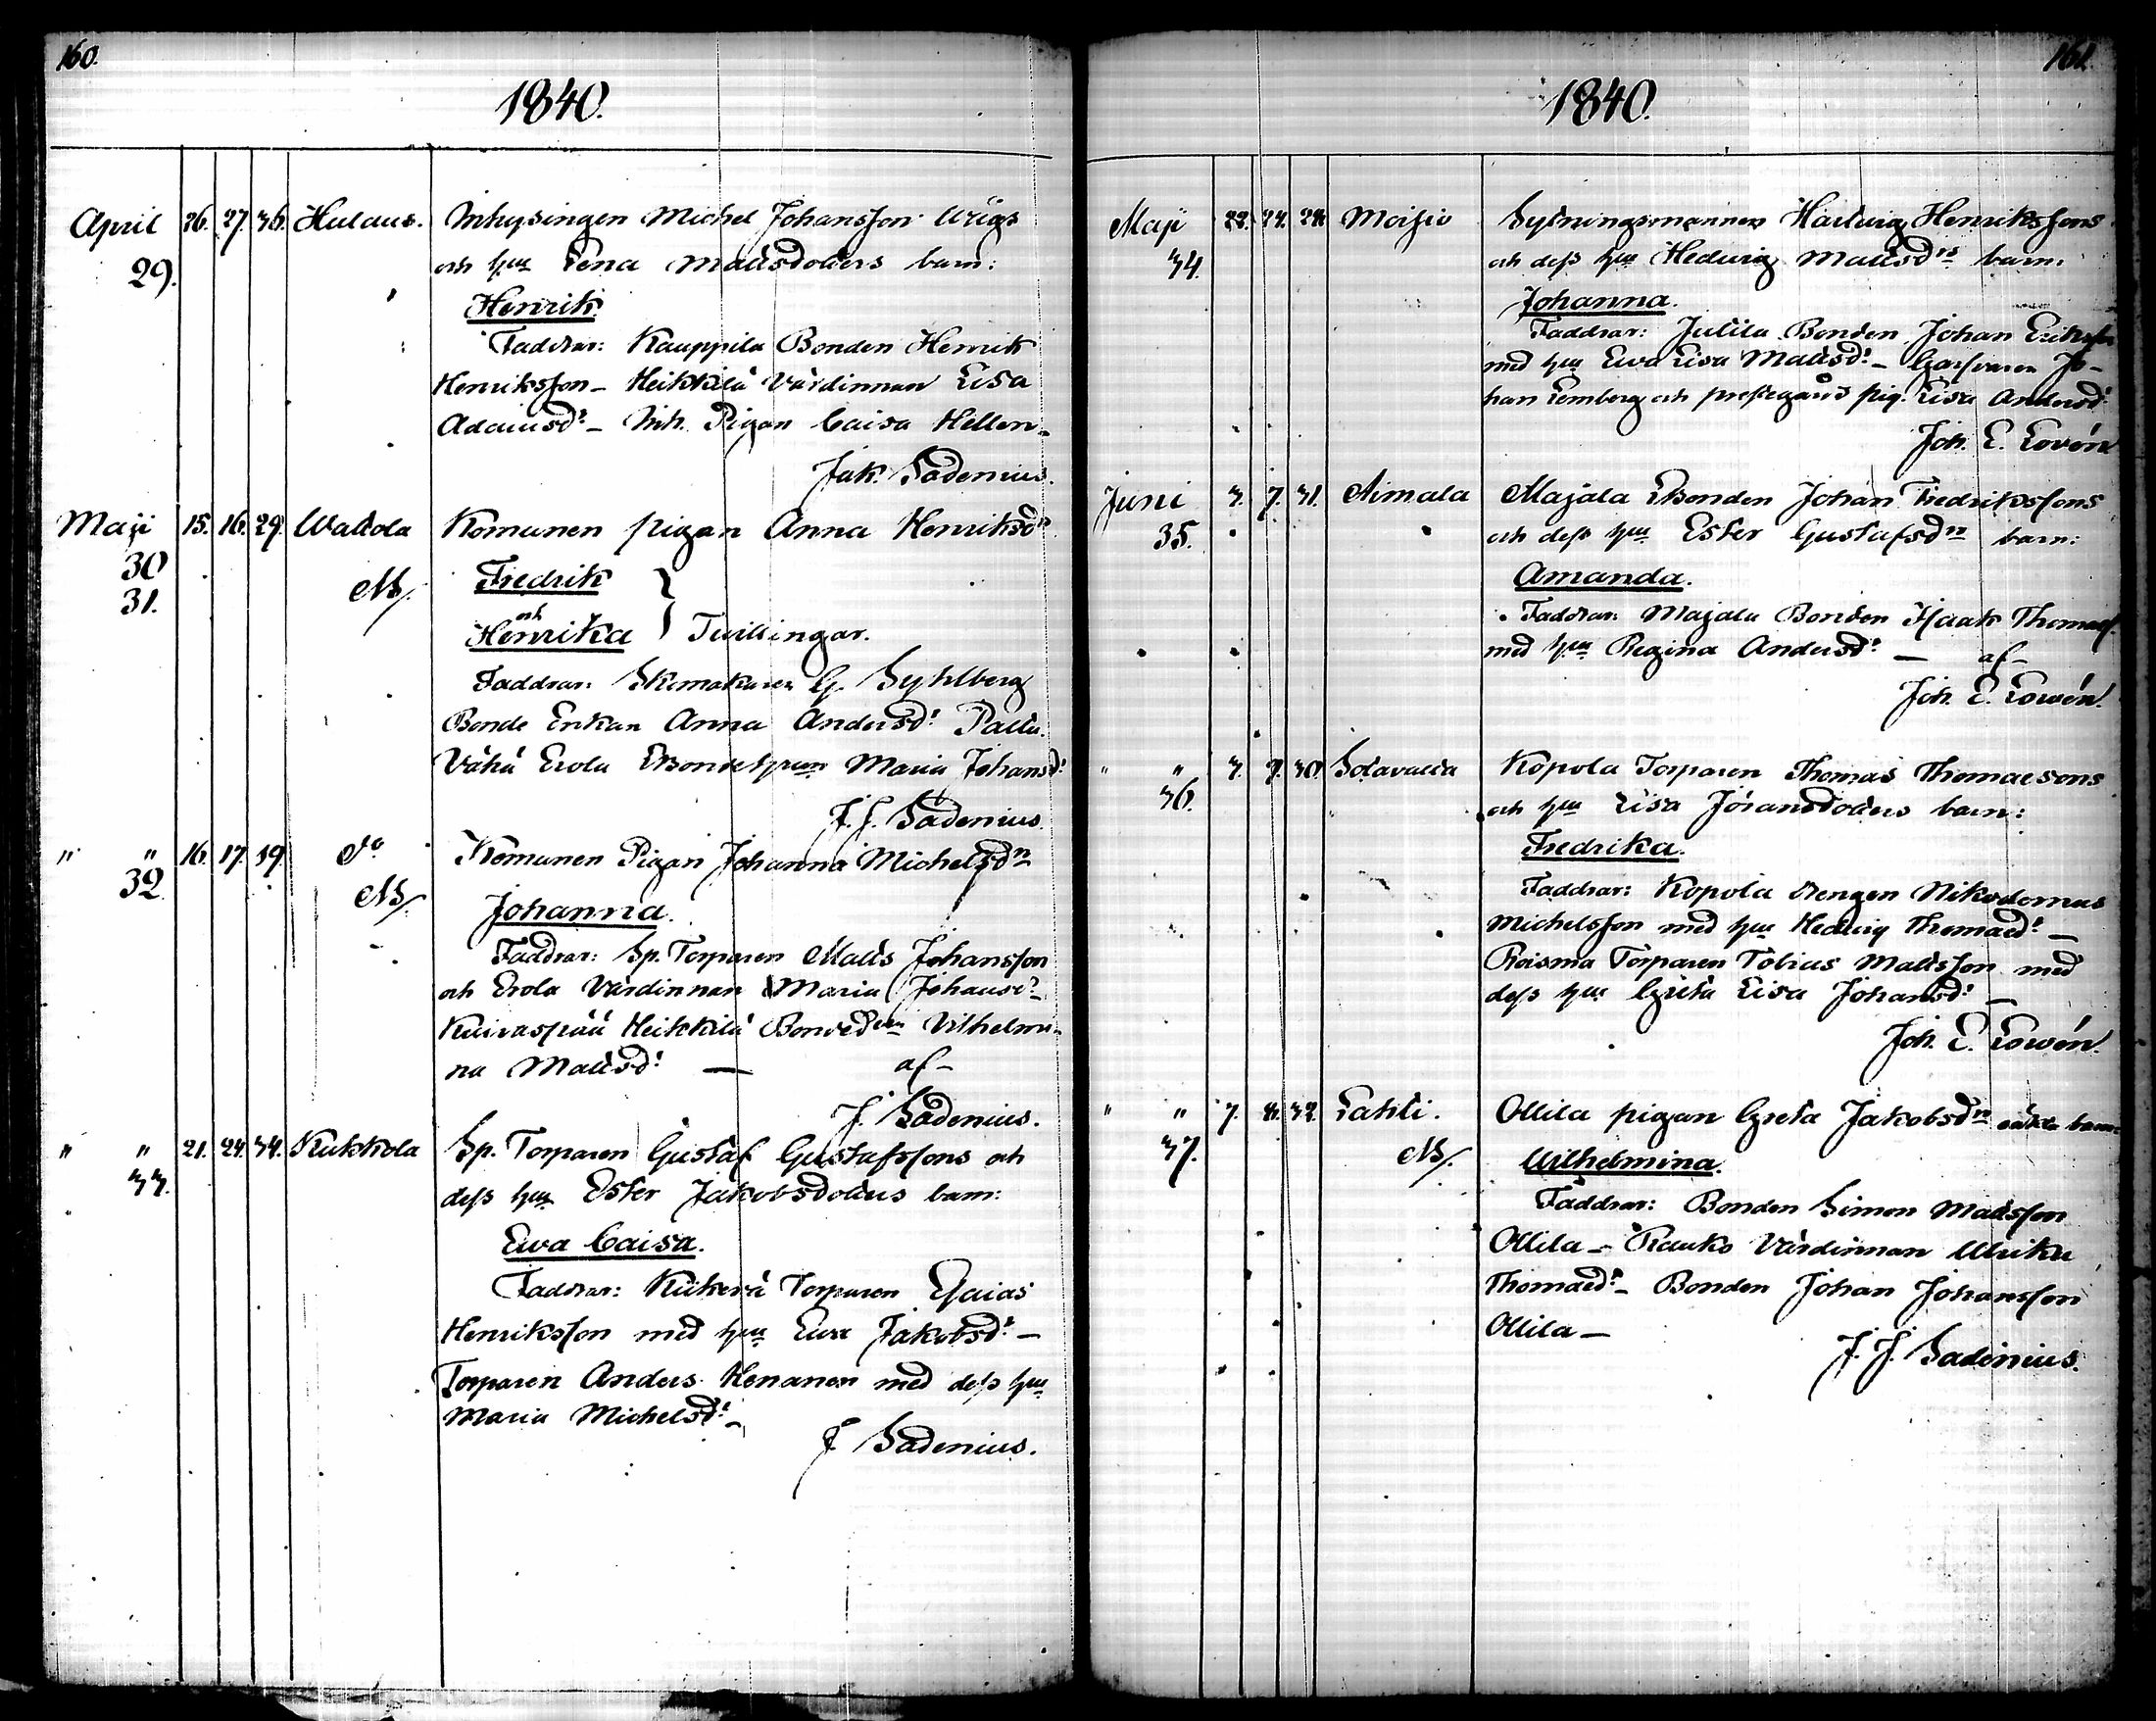 160.
1840.
April 26. 27. 36. Hulaus. Inhysingen Michel Johansson Wigs
29. och hu Lena Mattsdotters barn:
Henrik.
Faddrar: Kauppila Bonden Henrik
Henriksson – Heikkilä Värdinnan Lisa
Adamsd: – Inh. Pigan Caisa Hellen –
Jak. Sadenius.
Maji 15. 16. 29. Wattola Komunen pigan Anna Henriksdr
30 NB. Fredrik
31. och
Henrika } Tvillingar.
Faddrar: Skomakaren G. Syhlberg
Bonde Enkan Anna Andersd: Pallu.
Vähä Erola Bondehrun Maria Johansd:
J. J. Sadenius.
" " 16. 17. 39. do Komunen Pigan Johanna Michelsdr
32. NB. Johanna.
Faddrar: Sp. Torparen Matts Johansson
och Erola Värdinnan Maria Johansdr
Kuivaspää Heikkilä Vilhelmi-
na Mattsd: — af –
J. Sadenius.
" " 21. 24. 34. Kukkola Sp. Torparen Gustaf Gustafssons och
33. dess hu Ester Jakobsdotters barn:
Ewa Caisa.
Faddrar: Torparen Esaias
Henriksson med hu Ewa Jakobsd: –
Torparen Anders Henanen med dess hu
Maria Michelsd: –
J. Sadenius.
161.
1840.
Maji 22. 24. 28. Moisio Sytningsmannen Hartwig Henrikssons
34. och dess hu Hedwig Mattsdrs barn:
Johanna.
Faddrar: Jutila Bonden Johan Eriksson
med hu Ewa Lisa Mattsd: – Garfvaren Jo-
han Lemberg och prestegårds pig. Lisa Andersd:
Joh. E. Lovén
Juni 3. 7. 31. Aimala Majala Bonden Johan Fredrikssons
35. och dess hu Ester Gustafsdrs barn:
Amanda.
Faddrar: Majala Bonden Isaak Thomass.
med hu Regina Andersd: — af –
Joh. E. Lowén.
" " 3. 7. 30. Sotavalta Kopola Torparen Thomas Thomaesons
36. och hu Lisa Johansdotters barn:
Fredrika.
Faddrar: Kopola drengen Nikodemus
Michelsson med hu Hedwig Thomaed: –
Roisma Torparen Tobias Mattsson med
dess hu Greta Lisa Johansd: –
Joh. E. Lowén.
" " 7. 8. 32. Lahti. Ollila pigan Greta Jakobsdrs oäkta barn
37. NB. Wilhelmina.
Faddrar: Bonden Simon Mattsson
Ollila – Rauko Värdinnan Ulrika
Thomaed: – Bonden Johan Johansson
Ollila –
J. J. Sadenius.